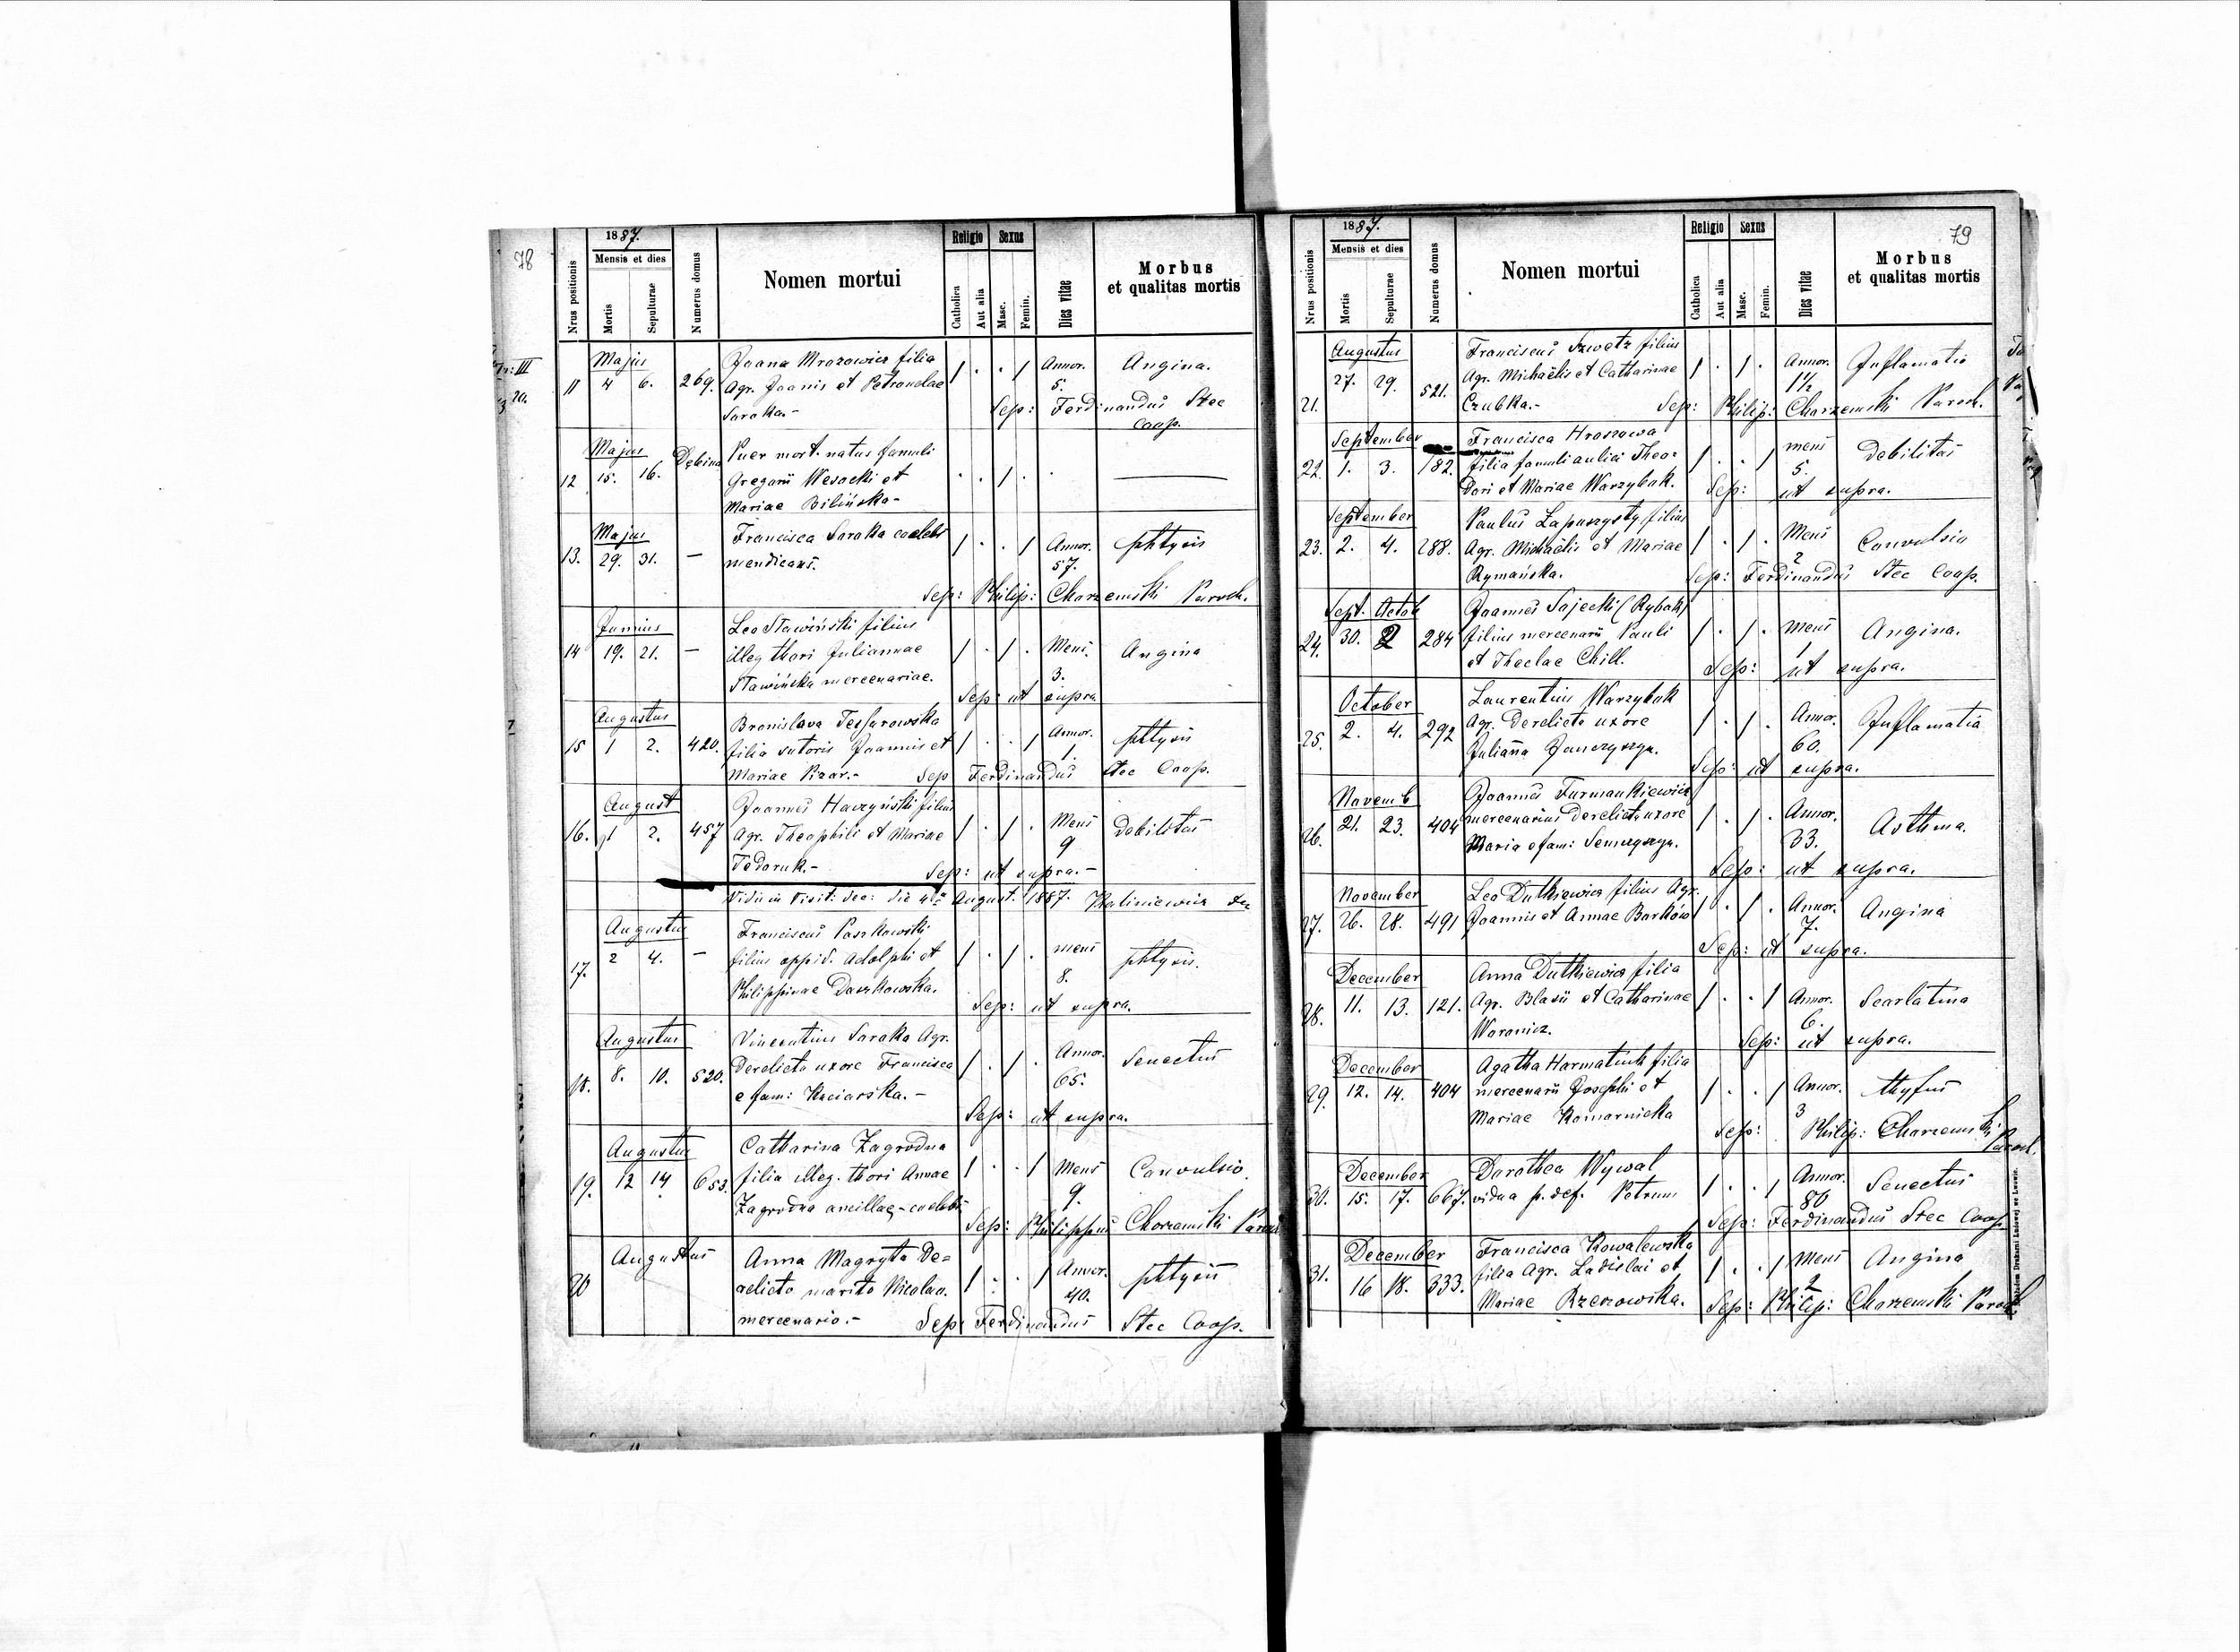 78
1887.
Nrus positionis
Mensis et dies
Mortis
Sepulturae
Numerus domus
Nomen mortui
Religio
Catholica
Aut alia
Sexus
Masc.
Femin.
Dies vitae
Morbus
et qualitas mortis
Majus
11 4 6. 269.
Joana Mrozowicz filia
Agr. Joanis et Petronelae
Saraka.-
1 . . 1 Annor.
5.
Angina.
Sep: Ferdinandus Stec
Coop.
Majus
12 15. 16. Dębina
Puer mort. natus famuli
Gregorii Wesocki et
Mariae Bilińska-
. . 1 .
Majus
13. 29. 31. —
Francisca Saraka coelebs
mendicans.
1 . . 1 Annor.
57.
phtysis
Sep: Philip: Charzemski Paroch.
Junius
14 19. 21. —
Leo Stawiński filius
illeg thori Juliannae
Stawińska mercenariae.
1 . 1 . Mens.
3.
Angina
Sep: ut supra
Augustus
15 1 2. 420.
Bronislava Tessarowska
filia sutoris Joannis et
Mariae Pizar.-
1 . . 1 Annor.
1.
phtysis
Sep Ferdinandus Stec Coop.
August
16. 1 2. 457
Joannes Haczyński filius
Agr. Theophili et Mariae
Fedoruk.-
1 . 1 . Mens
9
Debilitas
Sep: ut supra.-
Vidi in Visit: dec: die 4ta August. 1887. Kaliniewicz
Augustus
17. 2 4. —
Franciscus Paszkowski
filius oppid. Adolphi et
Philippinae Daszkowska.
1 . 1 . mens
8.
phtysis.
Sep: ut supra.
Augustus
18. 8. 10. 520.
Vincentius Saraka Agr.
Derelicta uxore Francisca
e fam:
1 . 1 . Annor.
65.
Senectus
Sep: ut supra.
Augustus
19. 12 14 653.
Catharina Zagrodna
filia illeg. thori Annae
Zagrodna ancillae-coelebs
1 . . 1 Mens
9.
Convulsio
Sep: Philippus Charzemski Paroch
Augustus
20
Anna Magryta De=
relicto marito Nicolao.
mercenario.-
1 . . 1 Annor.
40.
phtysis
Sep: Ferdinandus Stec Coop.
79
1887.
Nrus positionis
Mensis et dies
Mortis
Sepulturae
Numerus domus
Nomen mortui
Religio
Catholica
Aut alia
Sexus
Masc.
Femin.
Dies vitae
Morbus
et qualitas mortis
Augustus
21. 27. 29. 521.
Franciscus Szwetz filius
Agr. Michaëlis et Catharinae
Czubka.-
1 . 1 . Annor.
1½
Inflamatio
Sep: Philip: Charzemski Paroch.
September
22. 1. 3. 182.
Francisca Hroszowa
filia famuli aulici Theo=
dori et Mariae Warzybok.
1 . . 1 mens
5.
Debilitas
Sep: ut supra.
September
23. 2. 4. 288.
Paulus Zapuszysty filius
Agr. Michaëlis et Mariae
Rymańska.
1 . 1 . Mens
2
Convulsio
Sep: Ferdinandus Stec Coop.
Sept. Octob
24. 30. 2 284
Joannes Sajecki (Rybak)
filius mercenarii Pauli
et Theclae Chill.
1 . 1 . Mens
1
Angina.
Sep: ut supra.
October
25. 2. 4. 292
Laurentius Warzybok
Agr. Derelicta uxore
Julianna Janczyszyn.
1 . 1 . Annor.
60.
Inflamatia
Sep: ut supra.
Novemb
26. 21. 23. 404
Joannes Furmankiewicz
mercenarius Derelicta uxore
Maria e fam: Semczyszyn.
1 . 1 . Annor.
33.
Asthma.
Sep: ut supra.
November
27. 26. 28. 491
Leo Dutkiewicz filius Agr.
Joannis et Annae Barków
1 . 1 . Annor.
7.
Angina
Sep: ut supra.
December
28. 11. 13. 121.
Anna Dutkiewicz filia
Agr. Blasii et Catharinae
Woranicz.
1 . . 1 Annor.
6.
Scarlatina
Sep: ut supra.
December
29. 12. 14. 404
Agatha Harmatiuk filia
mercenarii Josephi et
Mariae Komarnicka
1 . . 1 Annor.
3
thyfus
Sep: Philip: Charzemski
Paroch.
December
30. 15. 17. 667.
Dorothea Wywal
vidua p. def. Petrum
1 . . 1 Annor.
80
Senectus
Sep: Ferdinandus Stec Coop
December
31. 16 18. 333.
Francisca Kowalewska
filia Agr. Ladislai et
Mariae Rzerzowska.
1 . . 1 Mens
2
Angina
Sep: Philip: Charzemski Paroch